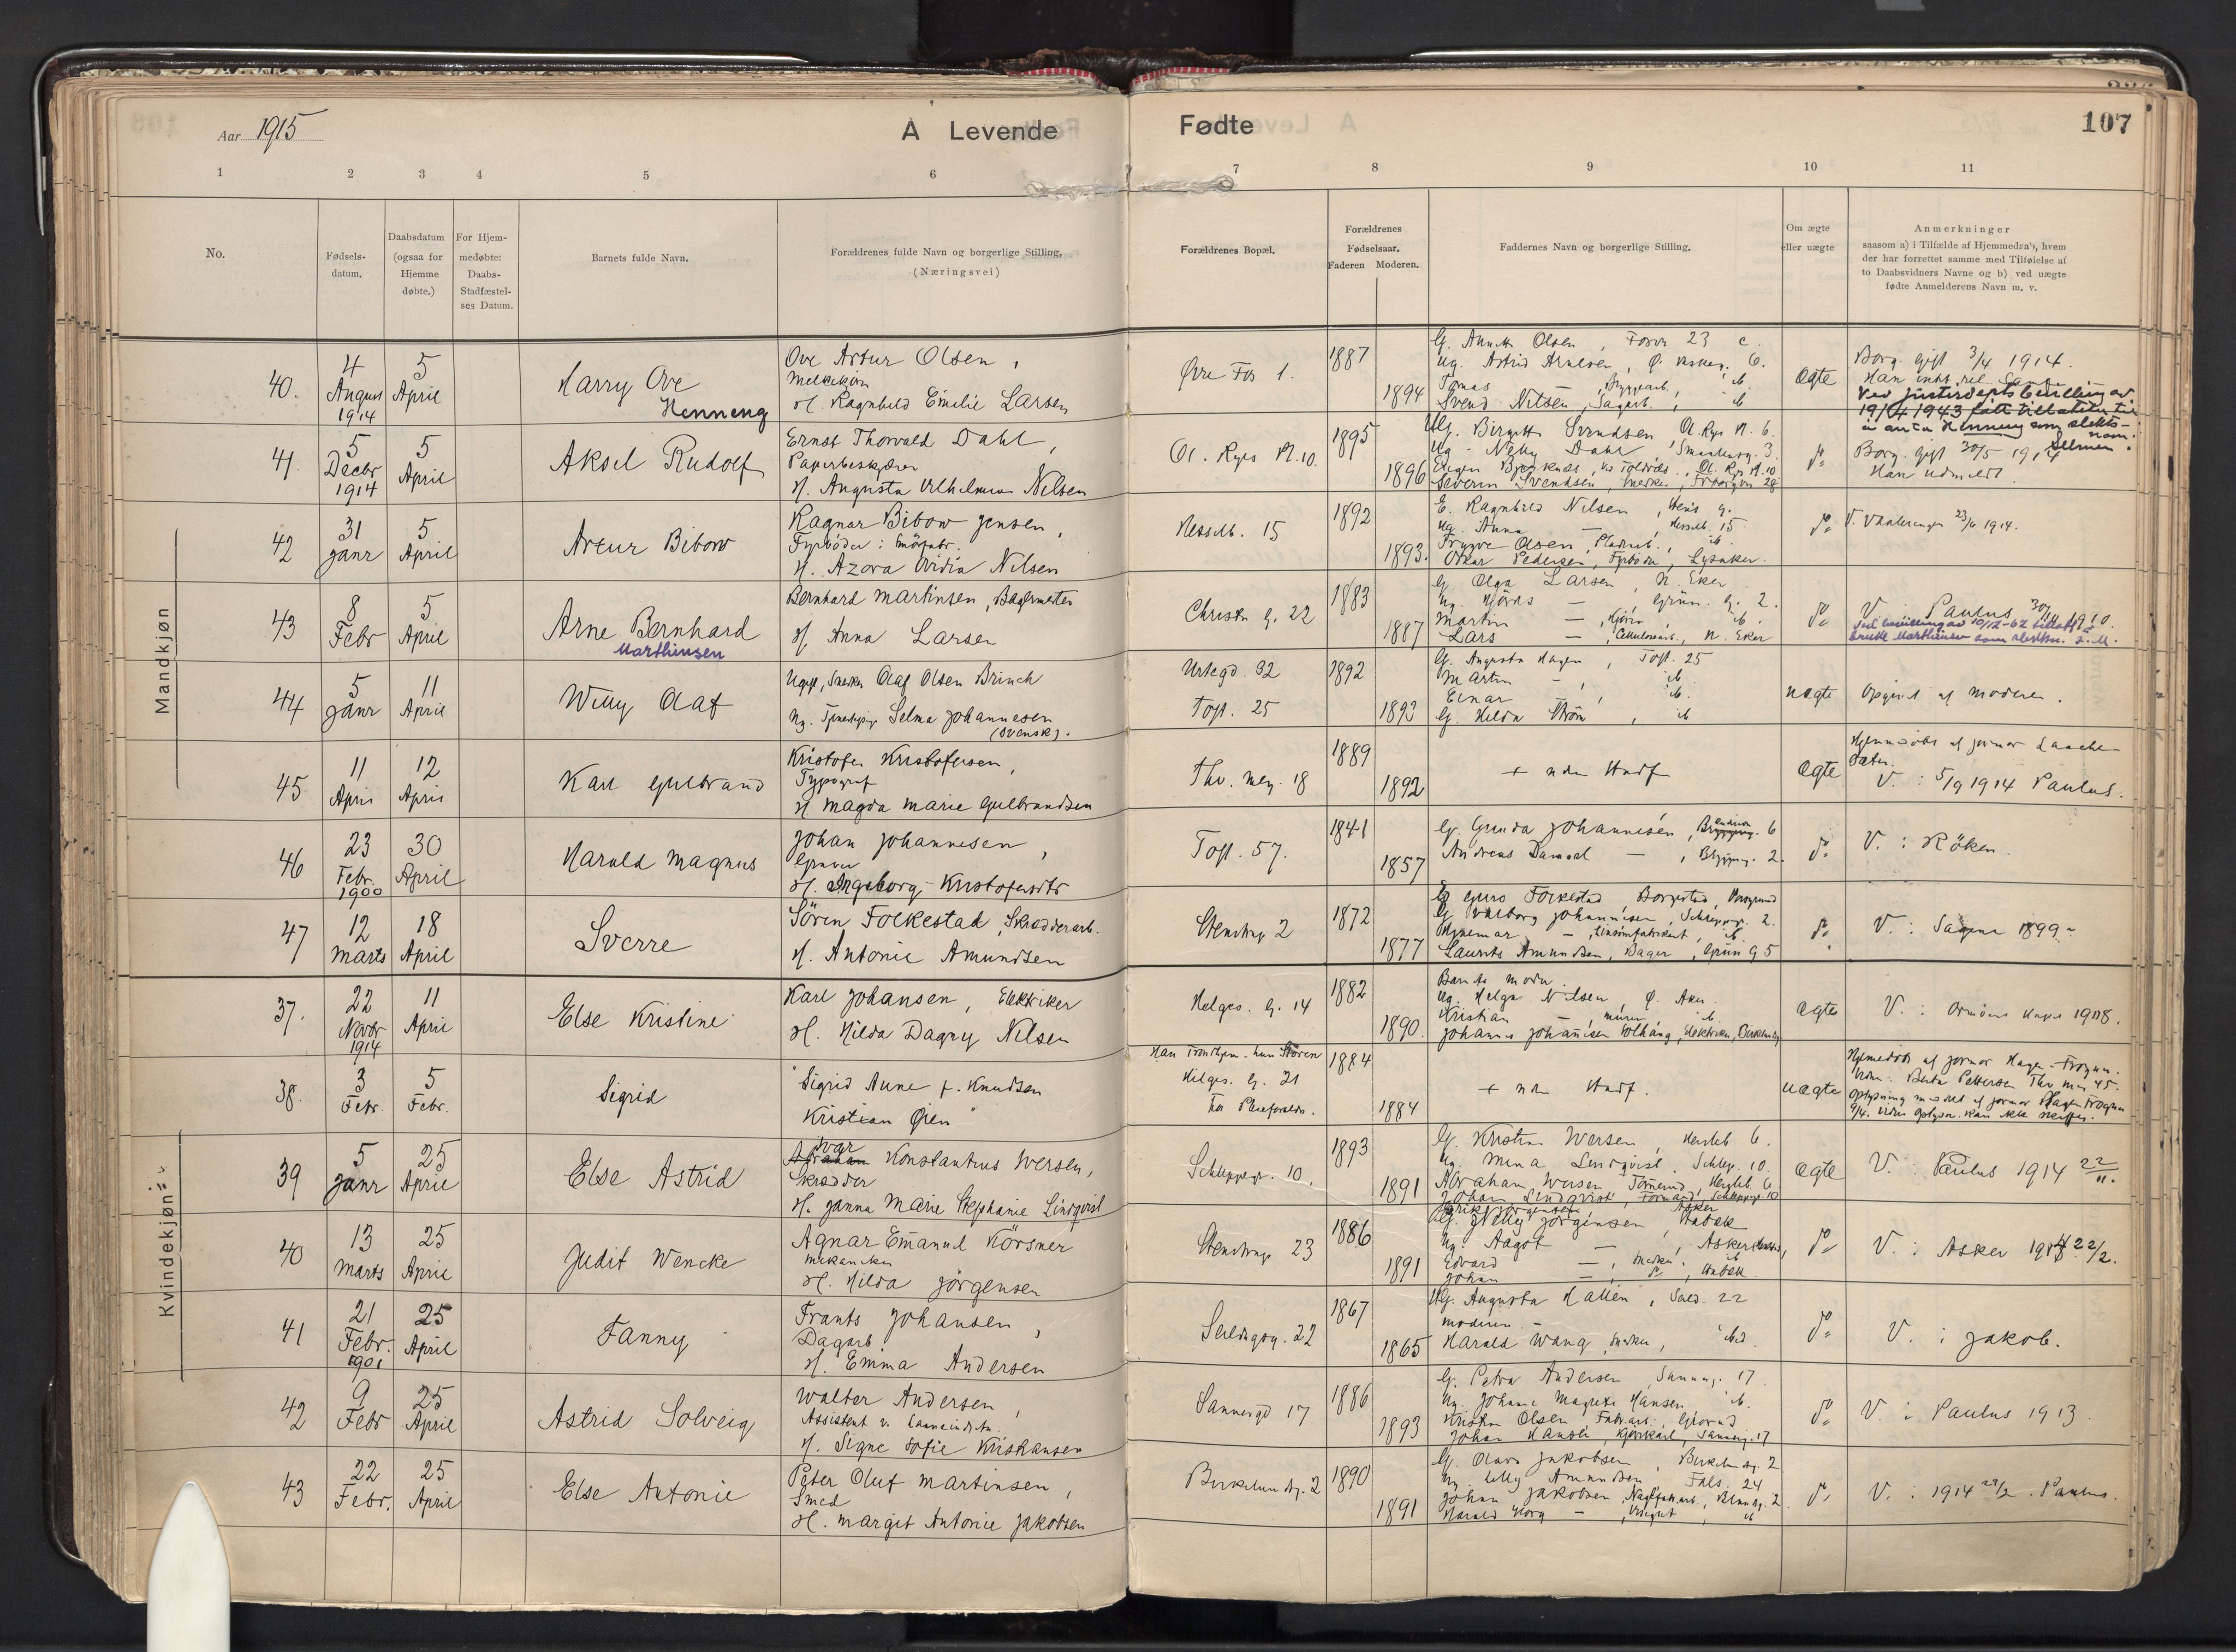 Aar 1915
A Levende Fødte
107
1 2 3 4 5 6 7 8 9 10 11
No.
Fødsels-
datum.
Daabsdatum
(ogsaa for
Hjemme
døbte.)
For Hjem-
medøbte:
Daabs-
Stadfæstel-
ses Datum.
Barnets fulde Navn.
Forældrenes fulde Navn og borgerlige Stilling.
(Næringsvei)
Forældrenes Bopæl.
Forældrenes
Fødselsaar.
Faderen Moderen.
Faddernes Navn og borgerlige Stilling.
Om ægte
eller uægte
Anmerkninger
saasom a) i Tilfælde af Hjemmedøa's, hvem
der har forrettet samme med Tilføielse af
to Daabsvidners Navne og b) ved uægte
fødte Anmelderens Navn m. v.
Mandkjøn
40.
4
August
1914
5
April
Harry Ove
Henning
Ove Artur Olsen,
H. Ragnhild Emilie Larsen
Øvre Fos 1.
1887
1894
Olsen, Fosv 23 c.
Ug. Astrid
Svend Nilsen, Sagarb., ib
ægte
Borg. gift 3/4 1914.
Ved justisdepts bevilling av
19/4 1943 fått tillatelse til
å anta Henning som slekts-
navn.
41.
5
Decbr
1914
5
April
Aksel Rudolf
Ernst Thorvald Dahl,
Papirbeskjærer
H. Augusta Vilhelmine Nilsen
Ol. Ryes Pl. 10.
1895
1896
Ug. Birgitte Svendsen Ol. Ryes Pl. 6.
Ug. Nelly Dahl,
Severin Svendsen, Snedker,
do
Borg. gift 30/5 1914
Han udmeldt.
42
31
Janr
5
April
Artur Bibow
Ragnar Bibow Jensen,
Fyrbøder i Smørfabr.
H. Azora Ovidia Nilsen
Hesselb. 15
1892
1893.
E. Ragnhild Nilsen,
Ug. Anna — , Hesselb. 15.
Trygve Olsen, ib.
Oskar Pedersen, Fyrbøder, Lysaker.
do
V. Vaalerengen 23/6 1914.
43
8
Febr
5
April
Arne Bernhard
Marthinsen
Bernhard Martinsen, Bagermester
H. Anna Larsen
Christn g. 22
1883
1887
G. Olga Larsen, N. Eker
Ug. Hjørdis — , Grün. g. 2.
Martin — , ib.
Lars — , Cellulosearb., N. Eker
do
V. Paulus 30/ 1910.
44
5
Janr
11
April
Willy Olaf
Ugift, Snedker Olaf Olsen Brinch
Ug. Tjenestepige Selma Johannesen
(svensk).
Urtegd. 32
Toft. 25
1892
1893
G. Augusta Hagen, Toft. 25
Martin — , ib
Einar — , ib.
G. Hilda Strøm, ib
uægte
Opgivet af moderen.
45
11
April
12
April
Karl Gulbrand
Kristofer Kristofersen,
Typograf
H Magda Marie Gulbrandsen
Thv. Mey. 18
1889
1892
ægte
Hjemmedøbt af jormor
V. : 5/9 1914 Paulus.
46
23
Febr.
1900
30
April
Harald Magnus
Johan Johannesen,
H. Ingeborg Kristofersdtr
Toft. 57.
1841
1857
G. Gunda Johannesen, 6
Andreas — , Bryggeg. 2.
do
V. : Røken.
47
12
Marts
18
April
Sverre
Søren Folkestad, Skrædderarb.
H. Antonie Amundsen
Stenstrup 2
1872
1877
G Guro Folkestad Borgestad, Porsgrund
G Valborg Johannesen, Schleppgr. 2.
Hjalmar — , ib
Laurits Amundsen, Bager, Grün. g 5
do
V. : Sagene 1899
Kvindekjøn
37.
22
Novbr
1914
11
April
Else Kristine
Karl Johansen, Elektriker
H. Hilda Dagny Nilsen
Helges. g. 14
1882
1890.
Barnets moder
Ug. Helga Nilsen, Ø. Aker.
Kristian — , murer, ib
Johannes Johannesen Solhaug, Elektriker,
ægte
V. : 1908.
38.
3
Febr.
5
Febr.
Sigrid
"Sigrid Aune f. Knudsen
Kristian Øien"
Han Trondhjem. hun Støren
Helges. g. 21
1884
1884
uægte
Hjemmedøbt af jormor Hagen-Frogner.
39
5
Janr
25
April
Else Astrid
Ivar
Abraham Konstantius Iversen,
Skrædder
H. Janna Marie Stephanie Lindqvist
Schleppegr. 10.
1893
1891
G. Kristine Iversen, Herslеb 6.
Ug. Mina Lindqvist, Schlep. 10.
Abraham Iversen Tømmerm., Hersleb. 6.
Johan Lindqvist, Formand, Schleppegr 10
ægte
V. : Paulus 1914 22/11.
40
13
Marts
25
April
Judit Wencke
Agnar Emanuel Körsner
mekaniker
H. Hilda Jørgensen
Stenstrup 23
1886
1891
G. Nelly Jørgensen, Asker
Ug. Aagot — , Asker
Edvard — , Snedker, ib
Johan — , do,
do
V. : Asker 1914 22/2.
41
21
Febr.
1901
25
April
Fanny
Frants Johansen,
Dagarb
H. Emma Andersen
Seildugsg. 22
1867
1865
Ug. Augusta Hallén, Seild. 22
moderen. —
Harald Wang, Snedker, ibid.
do
V. : Jakob.
42
9
Febr
25
April
Astrid Solveig
Walter Andersen,
Assistent v.
H. Signe Sofie Kristiansen
Sannergd 17
1886
1893
G. Petra Andersen, Sannerg. 17.
Ug. Johanne Magrete Hansen ib.
Kristian Olsen, Fabr.arb.,
Johan Hansen, Kjørekarl, Sannerg. 17
do
V. : Paulus 1913.
43
22
Febr.
25
April
Else Antonie
Peter Oluf Martinsen,
Smed
H. Margit Antonie Jakobsen
Birkelundg. 2
1890
1891
G. Olava Jakobsen, Birkelundg. 2
Ug. Lilly Amundsen Fals. 24
Johan Jakobsen,
Harald
do
V. : 1914 29/2. Paulus.